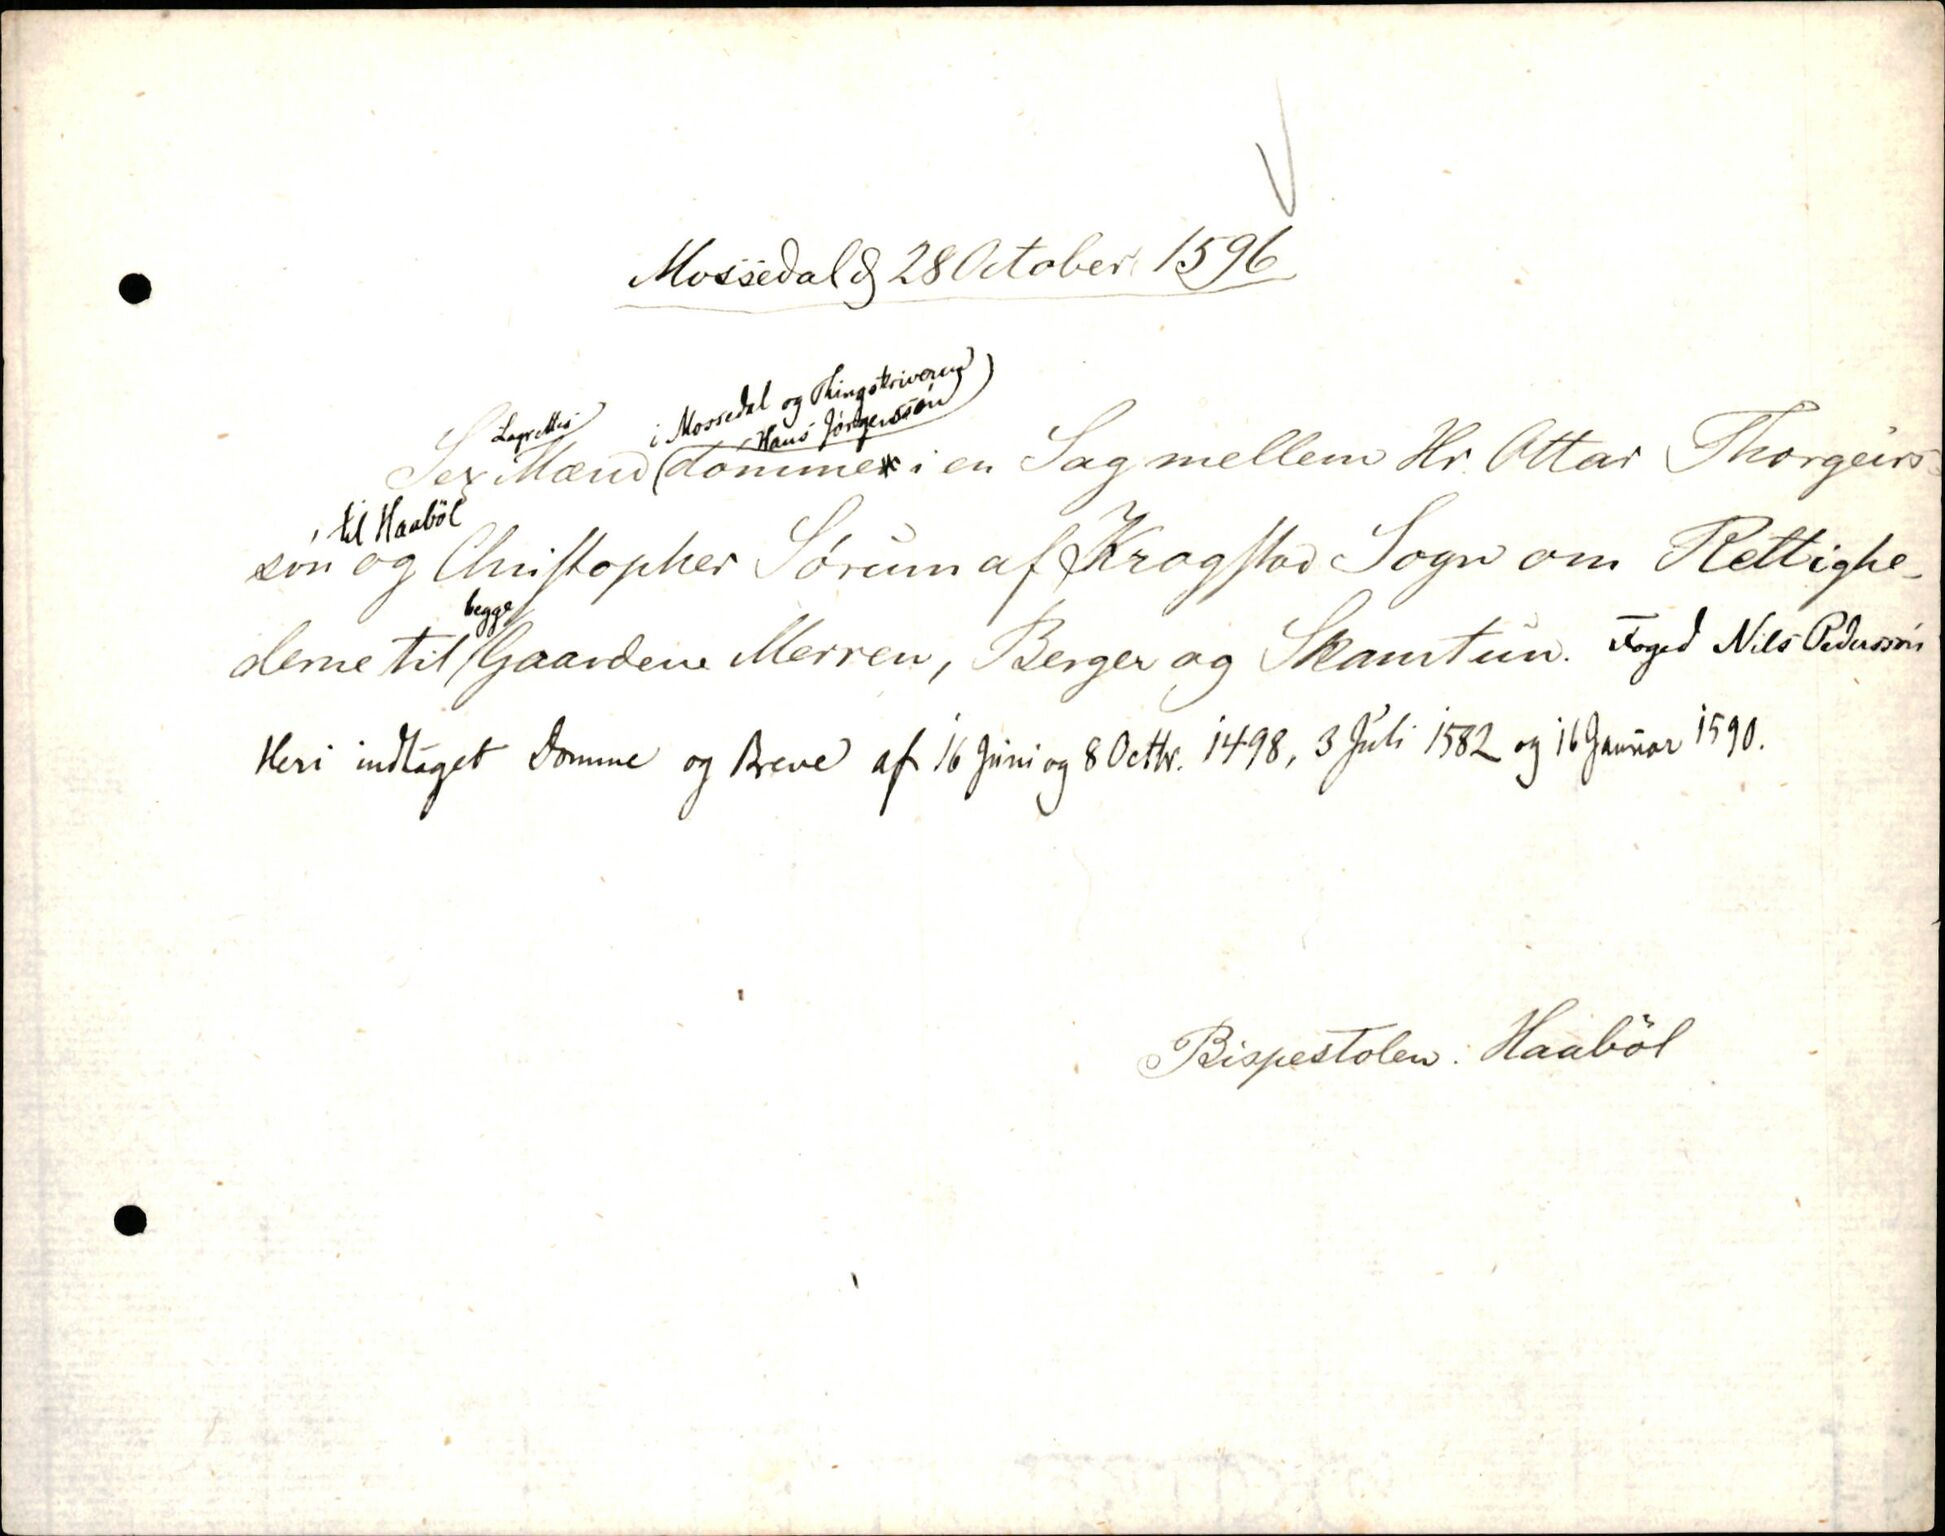 Mossedal d 28 October 1596
Lagrettis i Mossedal og Thingskriveren
Hans Jørgenssön
Sex Mænd dömme i en Sag mellem Hr. Ottar Thorgeirs-
til Haaböl
sön og Christopher Sörum af Krogstad Sogn om Rettighe-
begge
derne til Gaardene Merren, Berger og Skamtun. Foged Nils Pederssön
Heri indtaget Domme og Breve af 16 Juni og 8 Octbr. 1498, 3 Juli 1582 og 16 Januar 1590.
Bispestolen. Haaböl